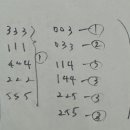 333 003 ①
111 ① 033 ②
444 114 ③
222 144 ③
555 225 ③
255 ②